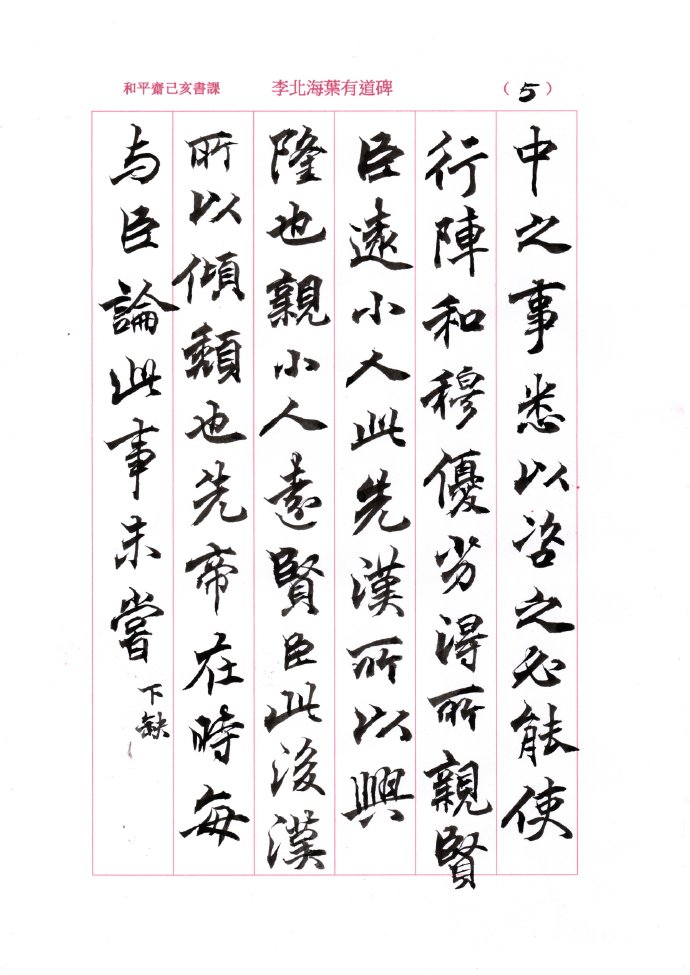 和平齋己亥書課
李北海葉有道碑
（5）
中之事悉以咨之必能使
行陣和穆優劣得所親賢
臣遠小人此先漢所以興
隆也親小人遠賢臣此後漢
所以傾頹也先帝在時每
与臣論此事未嘗
下缺